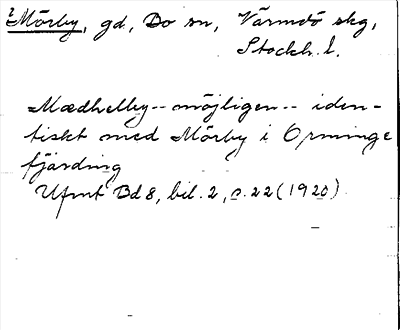 ? Mörby, gd, Do sn, Värmdö skg,
Stockh. l.
Mædhelby -- möjligen -- iden-
tiskt med Mörby i Orminge
fjärding
Ufmt Bd 8, bil. 2, s. 22 (1920)